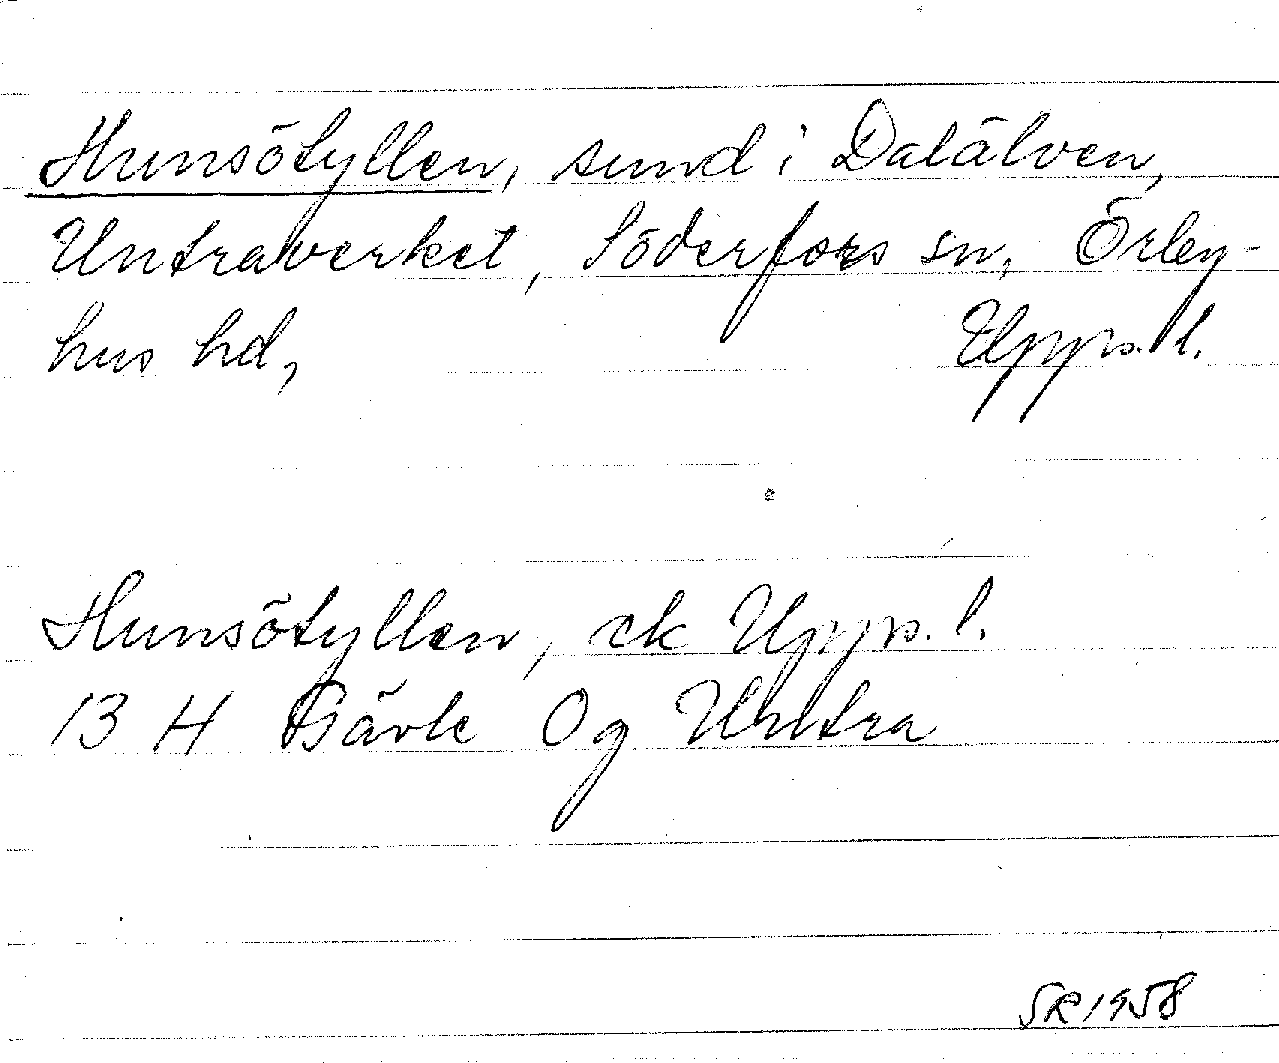 Hunsötyllen, sund i Dalälven,
Untraverket, Söderfors sn, Örby-
hus hd, Upps. l.
Hunsötyllen, ek Upps. l.
13 H Gävle Og Untra
SR 1958